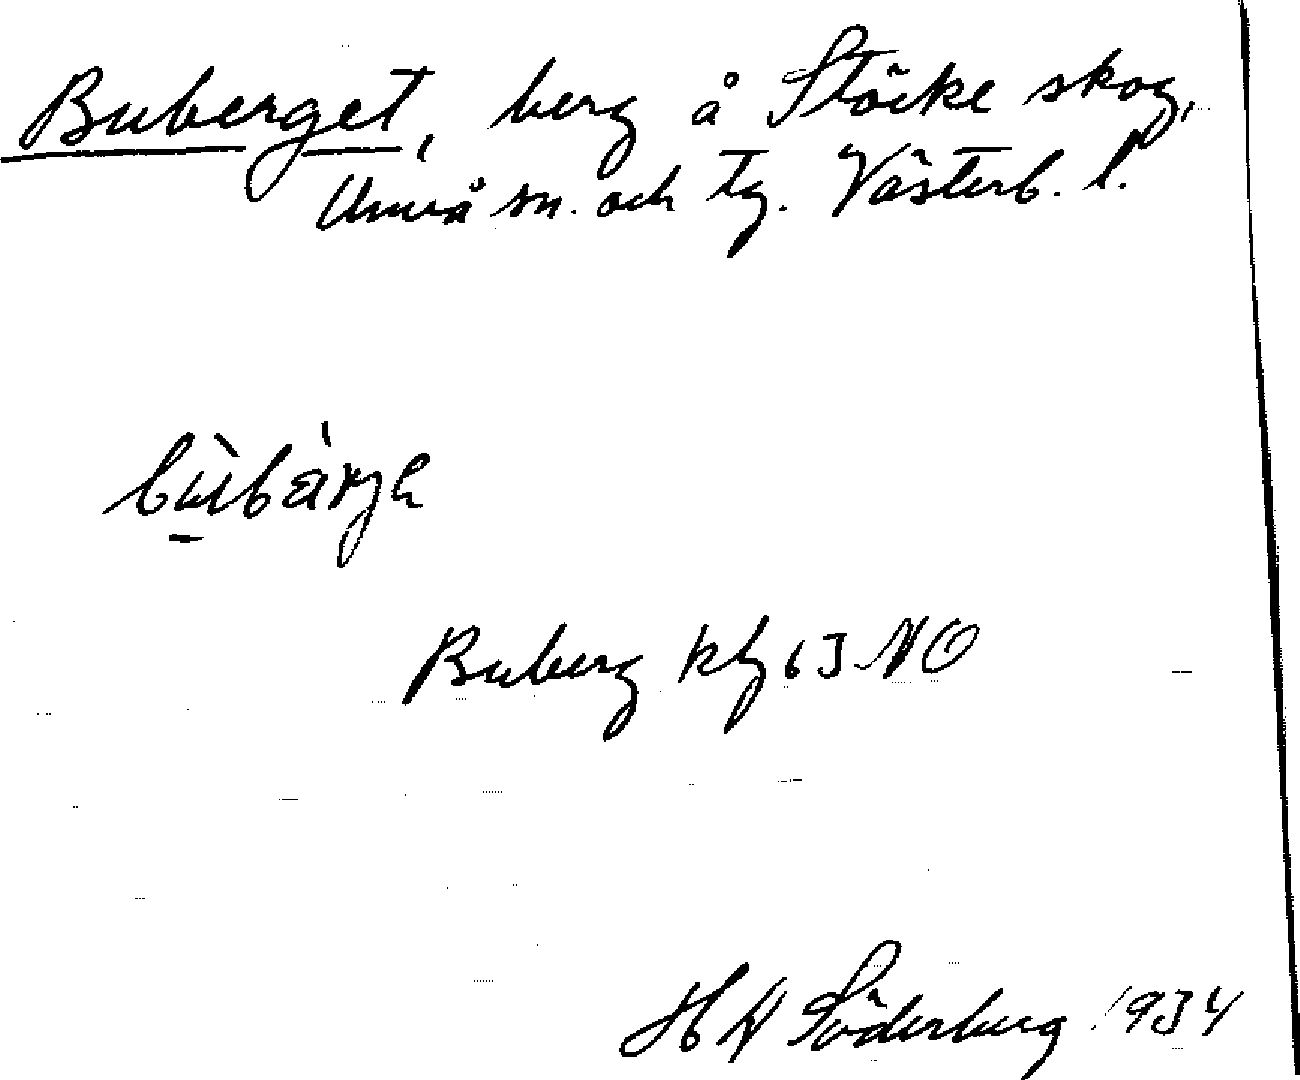 Buberget, berg å Stöcke skog,
Umeå sn. och tg. Västerb. l.
bu̠̇̀bàrjə
Buberg kbl 63 NO
H W Söderberg 1934